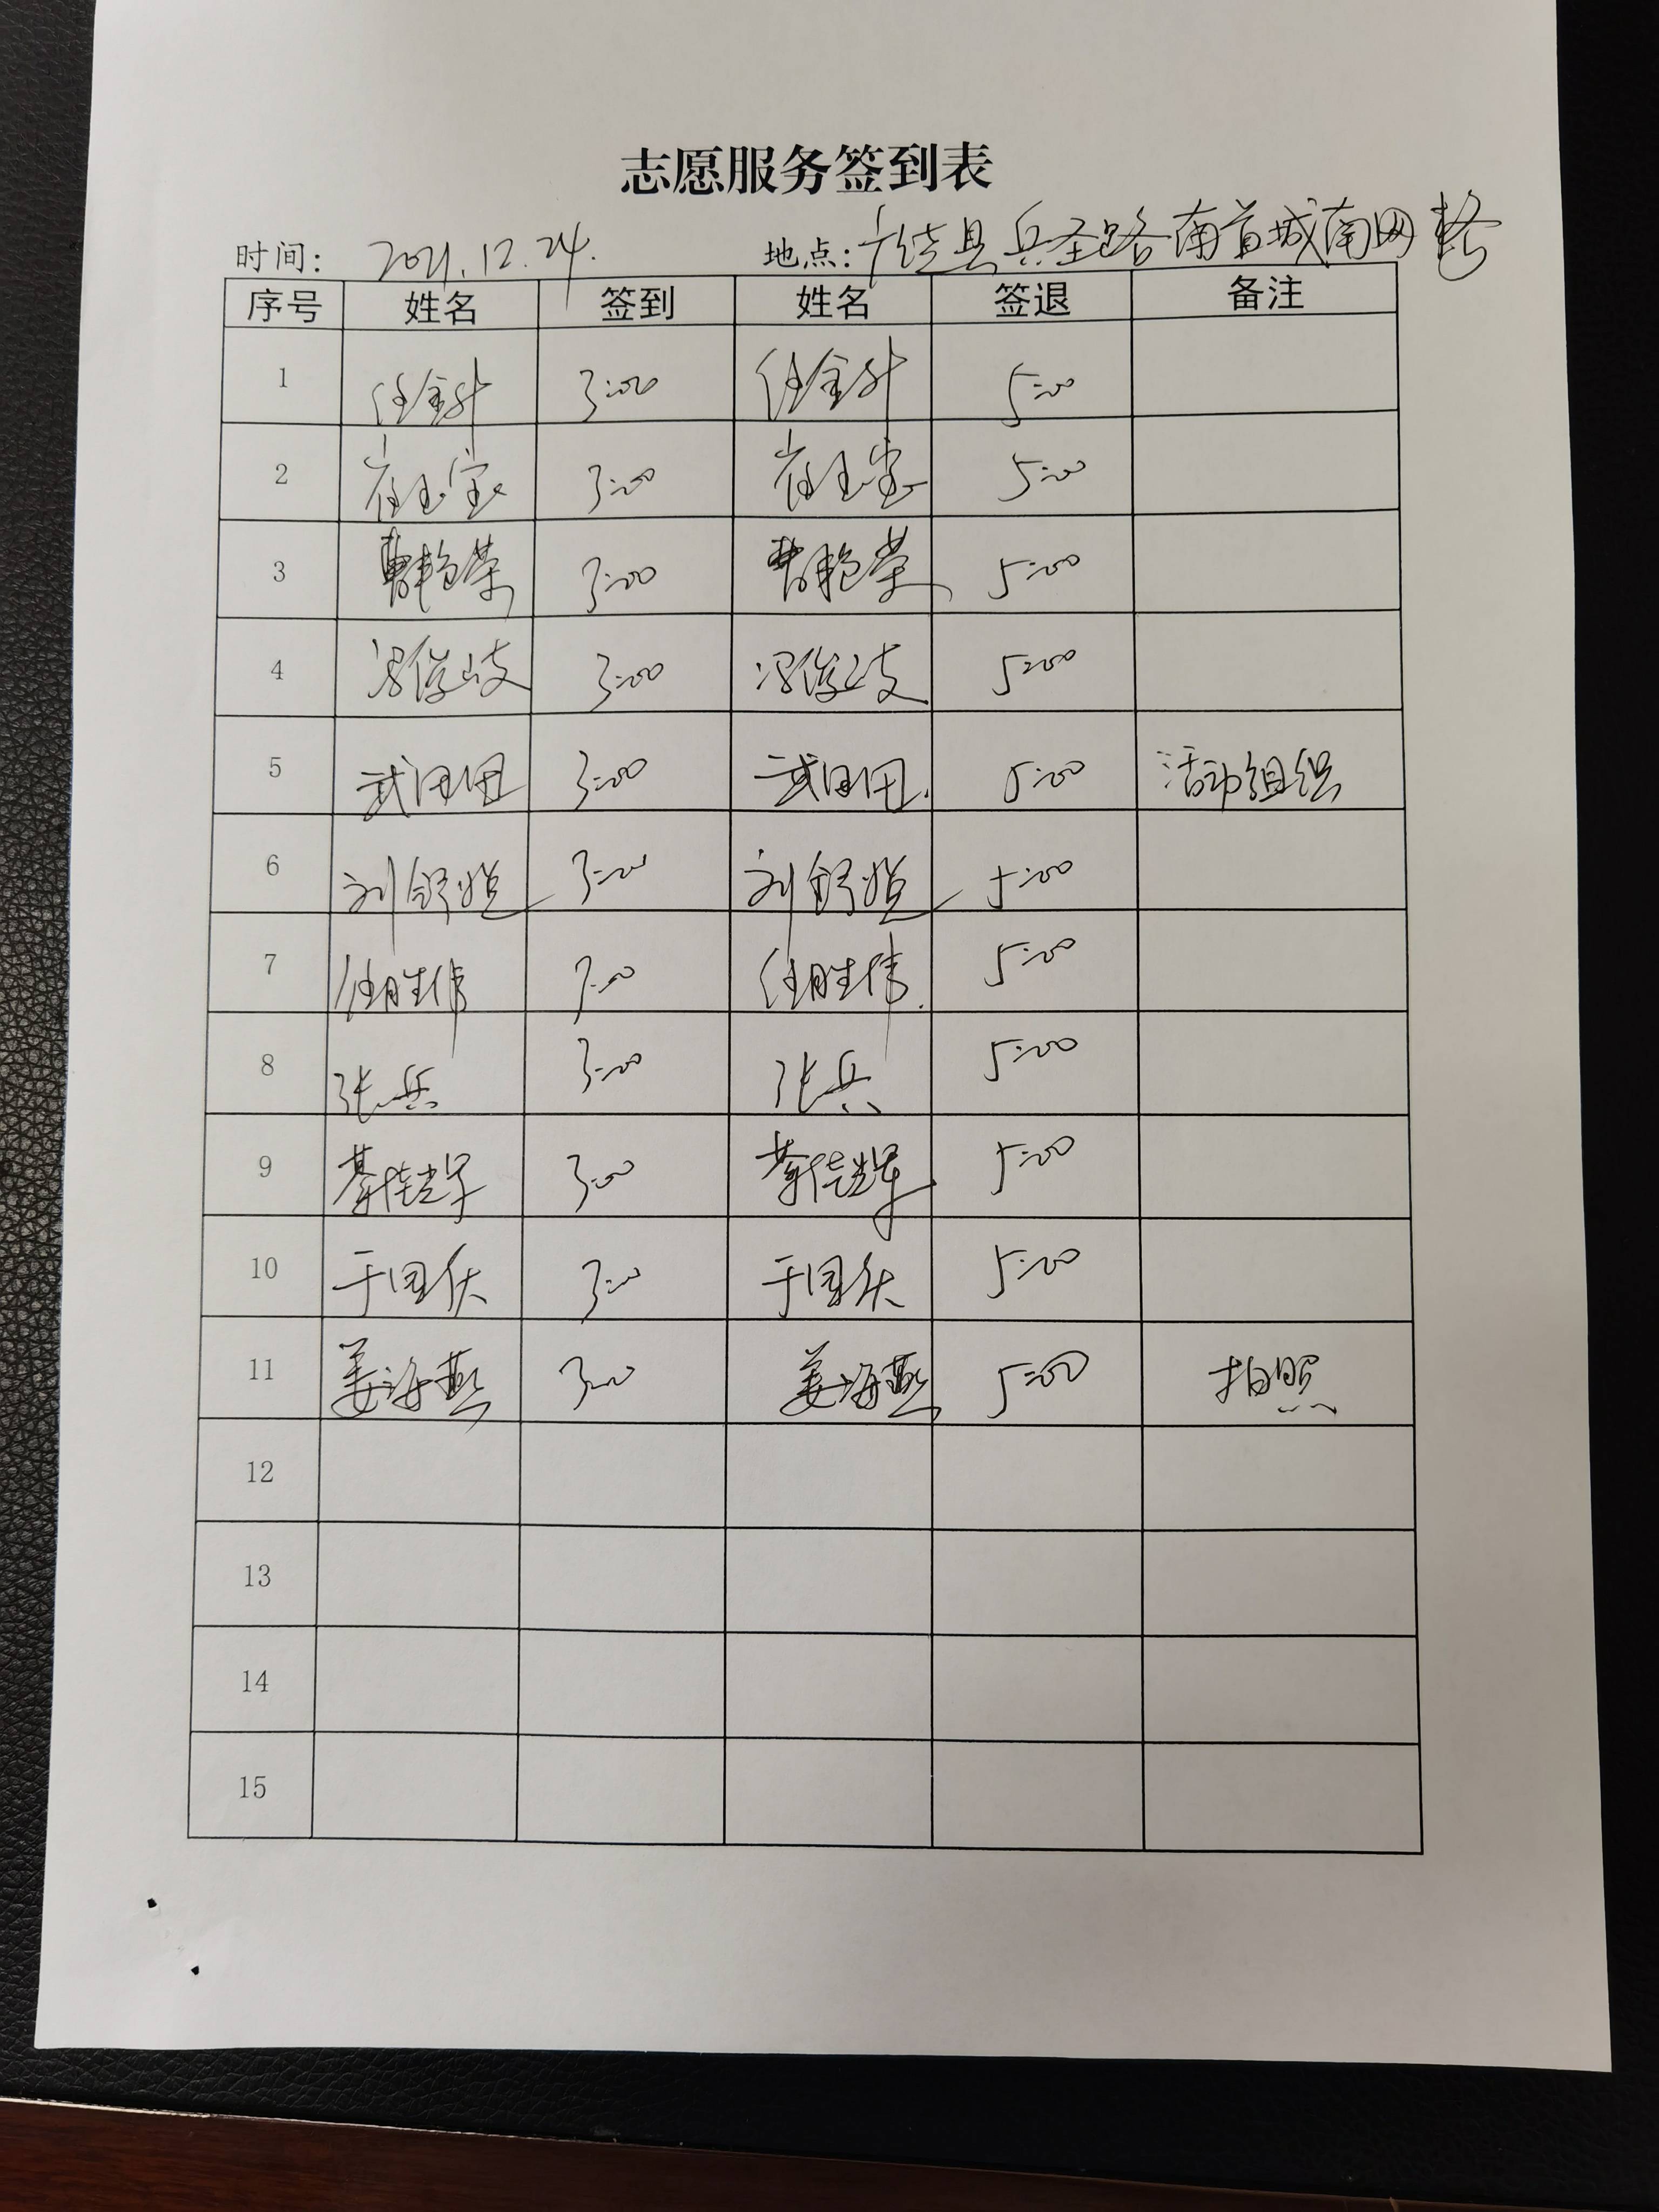 志愿服务签到表
时间: 2021.12.24. 地点: 广饶县兵圣路南首城南网
序号 姓名 签到 姓名 签退 备注
1 任金升 3:00 任金升 5:00
2 崔玉宝 3:00 崔玉宝 5:00
3 曹艳荣 3:00 曹艳荣 5:00
4 冯俊岐 3:00 冯俊岐 5:00
5 武田田 3:00 武田田 5:00 活动组织
6 刘舒 3:00 刘舒 5:00
7 任胜伟 3:00 任胜伟 5:00
8 张兵 3:00 张兵 5:00
9 3:00 5:00
10 于国庆 3:00 于国庆 5:00
11 姜海燕 3:00 姜海燕 5:00 拍照
12
13
14
15